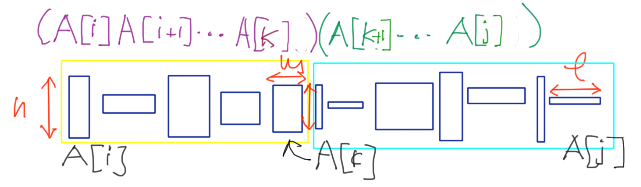 (A[i]A[i+1]... A[k])(A[k+1]... A[j])
n m l
A[i] A[k] A[j]